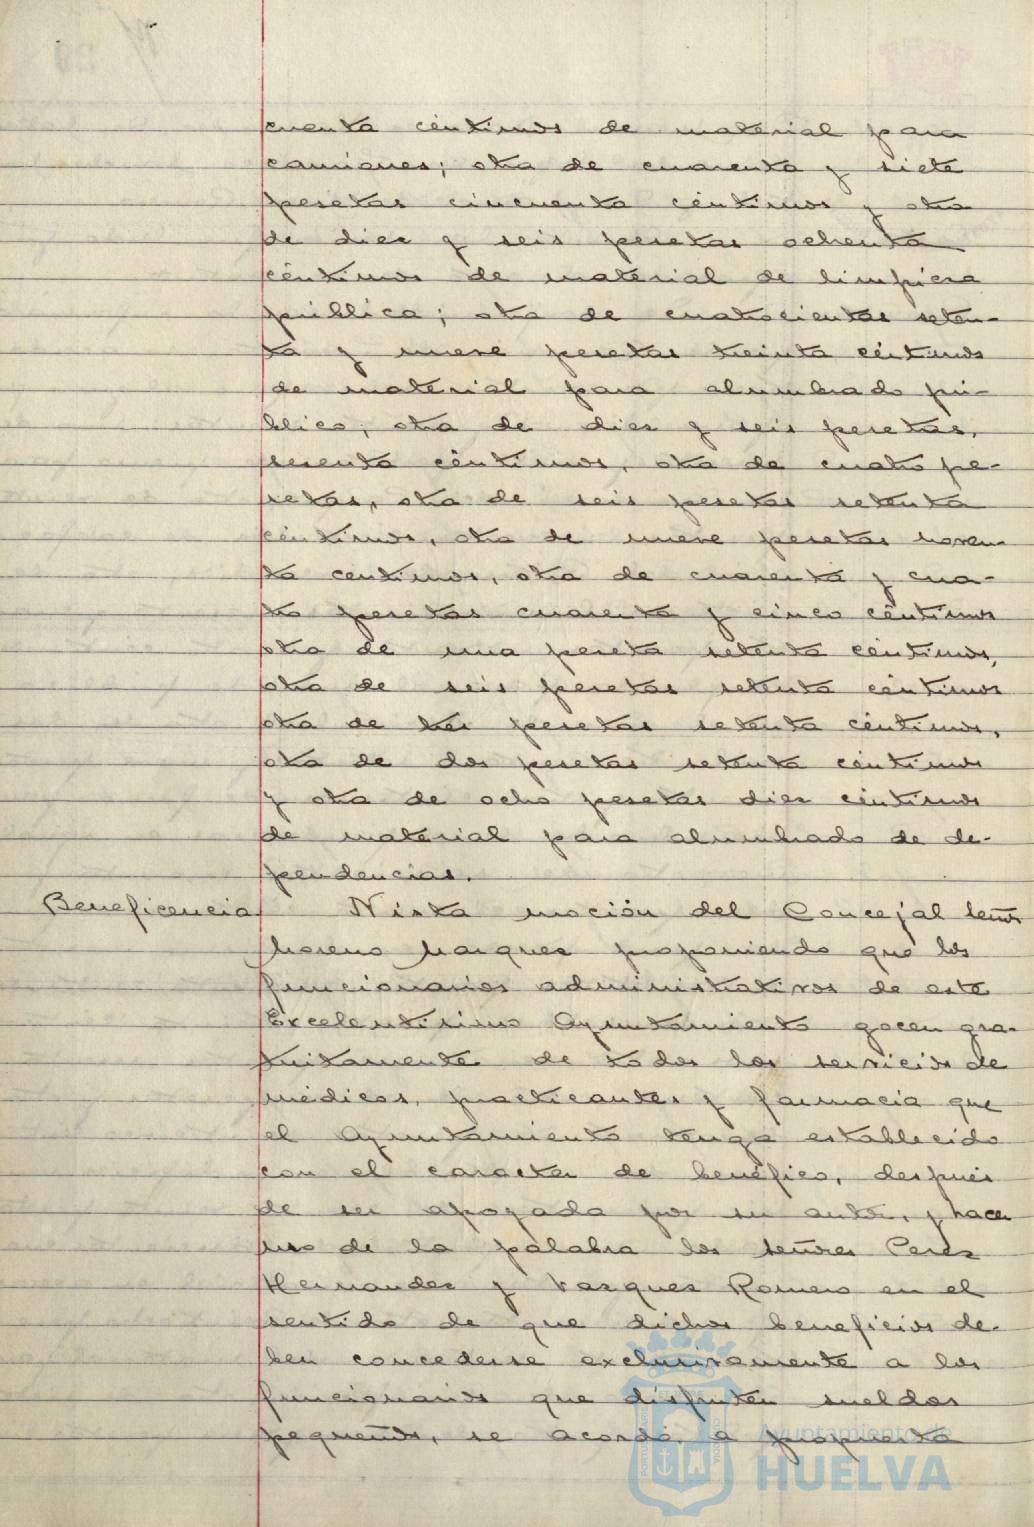 cuenta céntimos de material para
camiones; otra de cuarenta y siete
pesetas cincuenta céntimos y otra
de diez y seis pesetas ochenta
céntimos de material de limpieza
pública; otra de cuatrocientas seten-
ta y nueve pesetas treinta céntimos
de material para alumbrado pú-
blico; otra de diez y seis pesetas,
sesenta céntimos, otra de cuatro pe-
setas, otra de seis pesetas setenta
céntimos, otra de nueve pesetas noven-
ta centimos, otra de cuarenta y cua-
tro pesetas cuarenta y cinco céntimos
otra de una peseta setenta céntimos,
otra de seis pesetas setenta céntimos
otra de tres pesetas setenta céntimos,
otra de dos pesetas setenta céntimos
y otra de ocho pesetas diez céntimos
de material para alumbrado de de-
pendencias.
Beneficencia Vista moción del Concejal señor
Moreno Marquez proponiendo que los
funcionarios administrativos de este
Excelentisimo Ayuntamiento gocen gra-
tuitamente de todos los servicios de
médicos, practicantes y farmacia que
el Ayuntamiento tenga establecido
con el caracter de benéfico, después
de ser apoyada por su autor, y hacer
uso de la palabra los señores Perez
Hernandez y Vazquez Romero en el
sentido de que dichos beneficios de-
ben concederse exclusivamente a los
funcionarios que disfruten sueldos
pequeños, se acordó, a propuesta
Ayuntamiento de
HUELVA